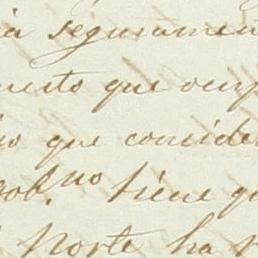 á seguramen
uesto que ocup
io que conside
gob.no tiene q
Norte ha